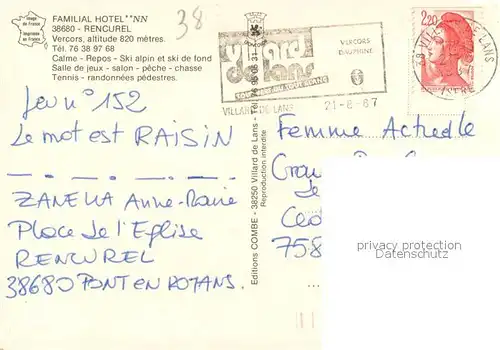 Image de France
Imprimée en France
FAMILIAL HOTEL **NN
38680 - RENCUREL
Vercors, altitude 820 mètres.
Tél. 76 38 97 68
Calme - Repos - Ski alpin et ski de fond
Salle de jeux - salon - pêche - chasse
Tennis - randonnées pédestres.
38
Jeu n° 152
Le mot est RAISIN
ZANELLA Anne-Marie
Place de l'Eglise
RENCUREL
38680 PONT EN ROYANS.
Editions COMBE - 38250 Villard de Lans - Tél. 76 95 08 31
Reproduction interdite
villard
de lans
VERCORS
DAUPHINE
VILLARD DE LANS
21-8-87
2,20
Femme Actuelle
758
privacy protection
Datenschutz